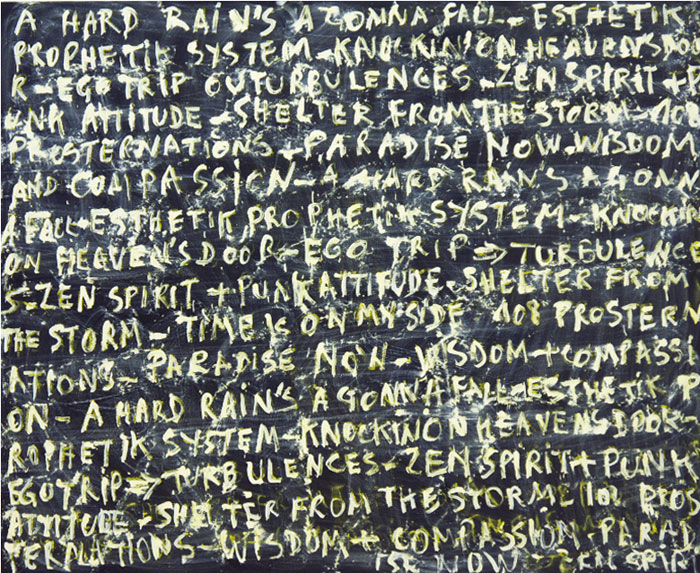 A HARD RAIN'S A GONNA FALL - ESTHETIK
PROPHETIK SYSTEM - KNOCKIN'ON HEAVEN'S DOO
R - EGO TRIP OUTURBULENCES - ZEN SPIRIT + P
UNK ATTITUDE - SHELTER FROM THE STORM - 108
PROSTERNATIONS - PARADISE NOW - WISDOM
AND COMPASSION - A HARD RAIN'S A GONN
A FALL - ESTHETIK PROPHETIK SYSTEM - KNOCKIN
ON HEAVEN'S DOOR - EGO TRIP → TURBULENCE
S - ZEN SPIRIT + PUNK ATTITUDE - SHELTER FROM
THE STORM - TIME IS ON MY SIDE 108 PROSTERN
ATIONS - PARADISE NOW - WISDOM + COMPASSI
ON - A HARD RAIN'S A GONNA FALL - ESTHETIK P
ROPHETIK SYSTEM - KNOCKIN'ON HEAVENS DOOR
EGO TRIP → TURBULENCES - ZEN SPIRIT + PUNK
ATTITUDE - SHELTER FROM THE STORM 108 PROS
TERNATIONS - WISDOM + COMPASSION - PARAD
ISE NOW - ZEN SPIRI